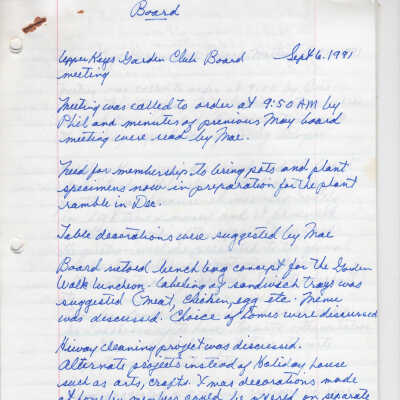 Board
Upper Keys Garden Club Board Sept 6. 1991
meeting
Meeting was called to order at 9:50 AM by
Phil and minutes of previous May board
meeting were read by Mae.
Need for membership to bring pots and plant
specimens now in preparation for the plant
ramble in Dec.
Table decorations were suggested by Mae
Board vetoed lunch bag concept for the Garden
Walk luncheon. Labeling of sandwich trays was
suggested (meat, chicken, egg etc. Menu
was discussed. Choice of were discussed
Hiway cleaning project was discussed.
Alternate projects instead of Holiday house
such as arts, crafts. Xmas decorations made
at home by members could be offered on separate